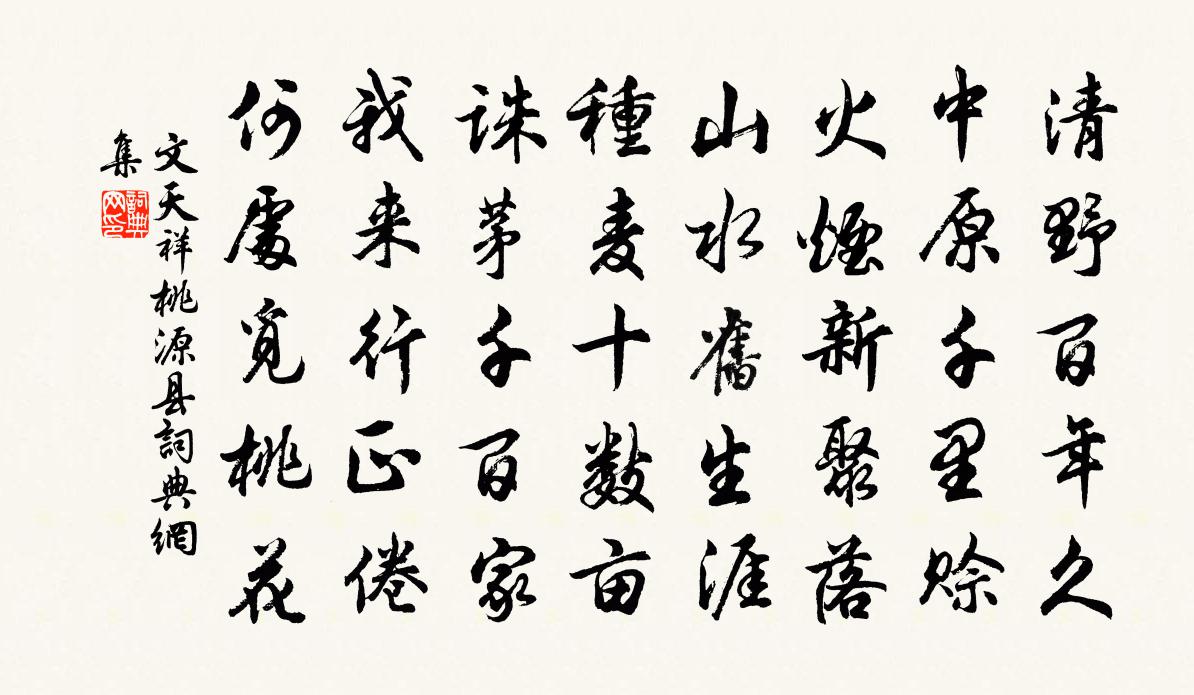 清野百年久
中原千里赊
火煙新聚落
山水舊生涯
種麦十数亩
诛茅千百家
我来行正倦
何處覓桃花
文天祥桃源县詞典網
集
詞典网印